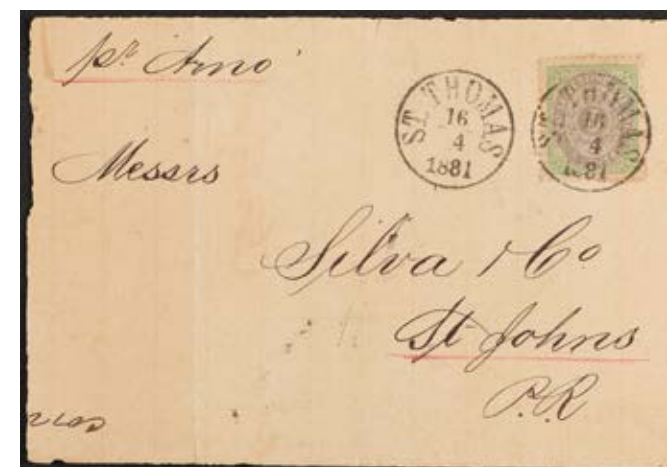 pr Arno
ST. THOMAS
16
4
1881
ST. THOMAS
16
4
1881
Messrs
Silva & Co
St Johns
P.R